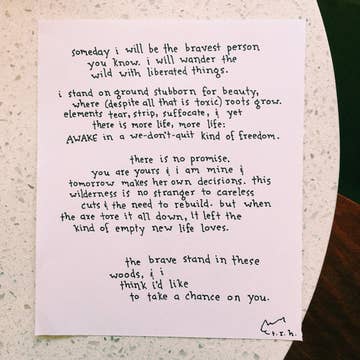 someday i will be the bravest person
you know. i will wander the
wild with liberated things.
i stand on ground stubborn for beauty,
where (despite all that is toxic) roots grow.
elements tear, strip, suffocate, & yet
there is more life, more life:
AWAKE in a we-don't-quit kind of freedom.
there is no promise.
you are yours & i am mine &
tomorrow makes her own decisions. this
wilderness is no stranger to careless
cuts & the need to rebuild. but when
the axe tore it all down, it left the
kind of empty new life loves.
the brave stand in these
woods, & i
think i'd like
to take a chance on you.
t.r.h.